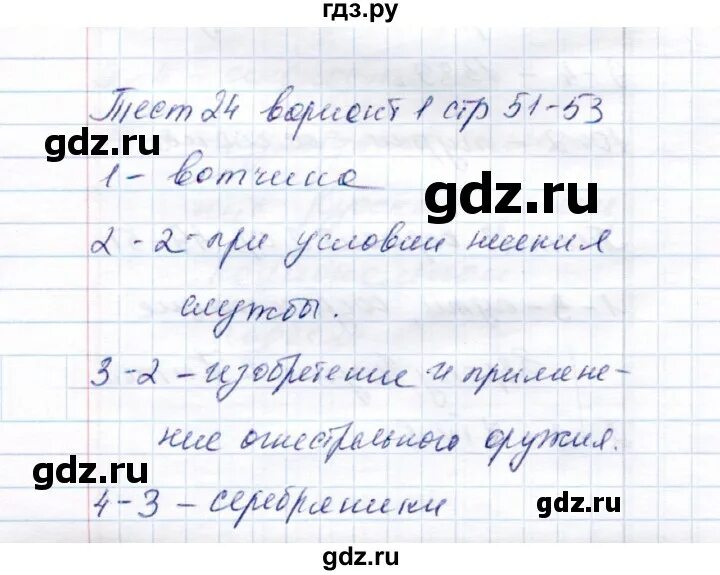 гдз.ру
Тест 24 вариант 1 стр 51-53
gdz.ru
1 - вотчина
gdz.ru
2 - 2 - при условии несения
службы.
3 - 2 - изобретение и примене-
ние огнестрельного оружия.
gdz.ru
4 - 3 - серебряники
gdz.ru
gdz.ru